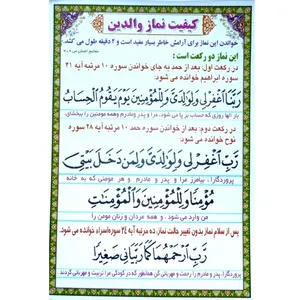 کیفیت نماز والدین
خواندن این نماز برای آرامش خاطر بسیار مفید است و ۴ دقیقه طول می کشد.
این نماز دو رکعت است:
در رکعت اول: بعد از حمد به جای خواندن سوره ۱۰ مرتبه آیه ۴۱
سوره ابراهیم خوانده می شود:
رَبَّنَا اغْفِرْ لِی وَلِوَالِدَیَّ وَلِلْمُؤْمِنِینَ یَوْمَ یَقُومُ الْحِسَابُ
بار الها روزی که حساب بر پا می شود، مرا و پدر ومادرم وهمه مومنین را ببخشای.
در رکعت دوم: بعد از حمد ۱۰ مرتبه آیه ۲۸ سوره
نوح خوانده می شود:
رَبِّ اغْفِرْ لِی وَلِوَالِدَیَّ وَلِمَنْ دَخَلَ بَیْتِیَ
پروردگارا، بیامرز مرا و پدر و مادرم و هر مومنی که به خانه
مُؤْمِنًا وَلِلْمُؤْمِنِینَ وَالْمُؤْمِنَاتِ
من وارد می شود، و همه مردان و زنان مومن را
پس از سلام نماز بدون تغییر حالت نماز، ده مرتبه آیه ۲۴ سوره اسراء خوانده می شود.
رَبِّ ارْحَمْهُمَا كَمَا رَبَّیَانِی صَغِیرًا
پروردگارا، پدر و مادرم را رحمت و مهربانی کن همانطور که در کودکی مرا تربیت و مهربانی کردند